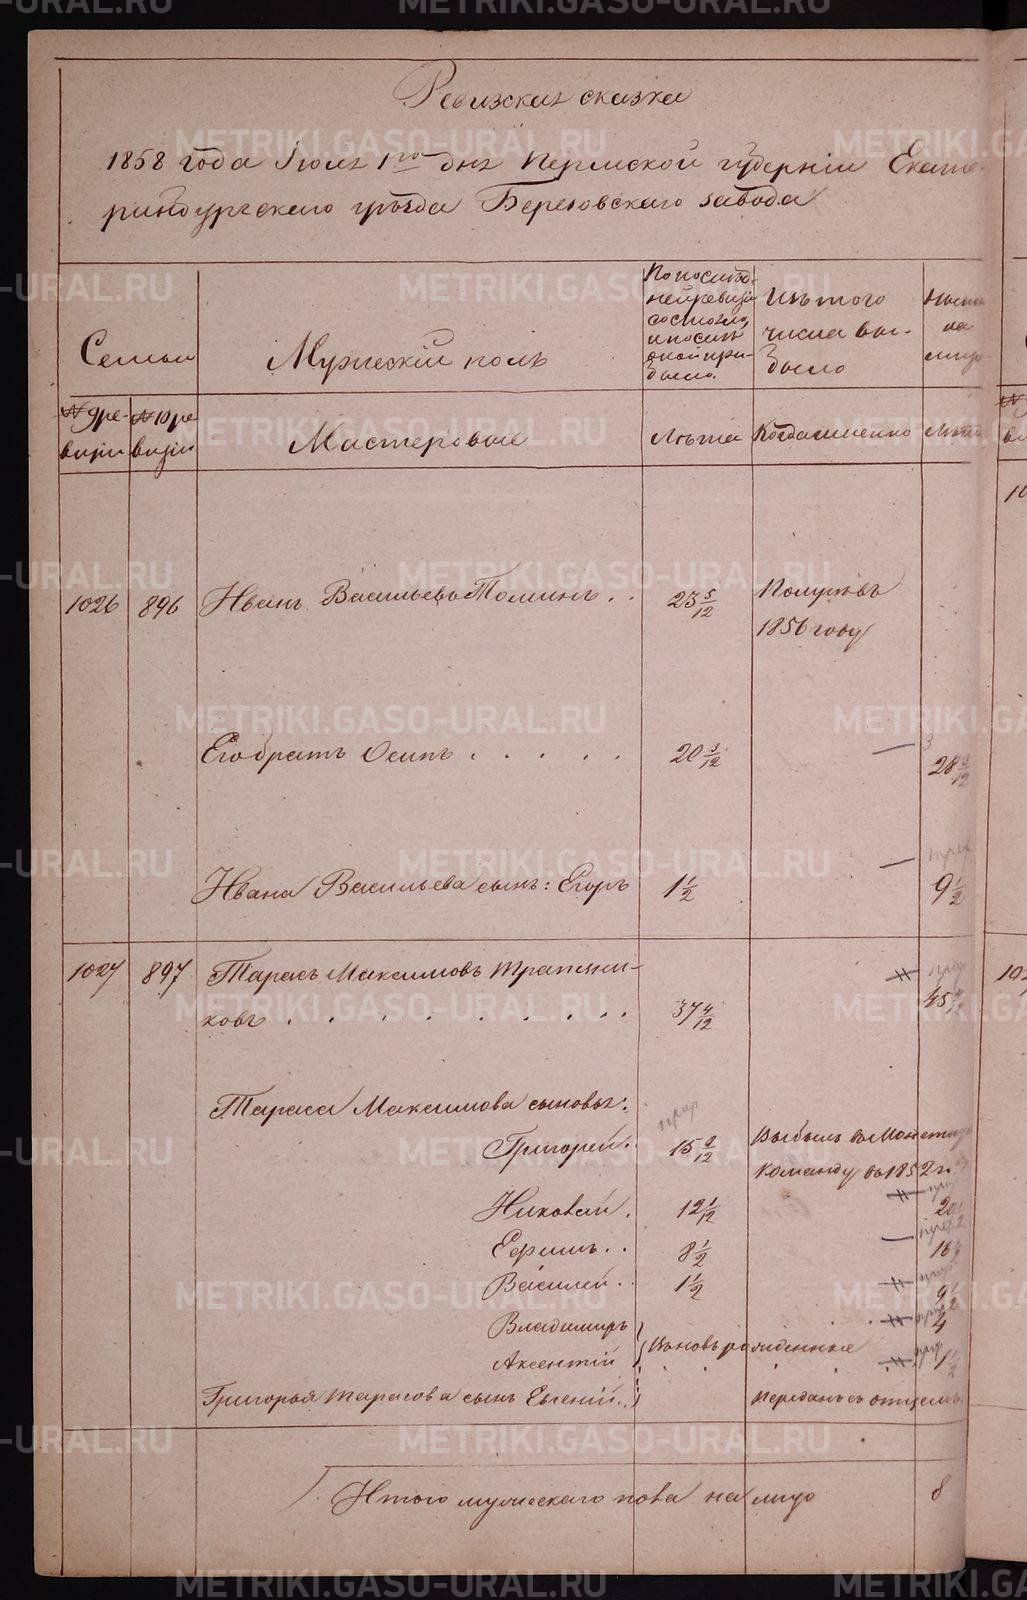 Ревизская сказка
1858 года Iюля 1го дня Пермской губернiи Екате-
ринбургскаго уѣзда Березовскаго завода
Семьи
Мужескiй полъ
По послѣд-
ней ревизiи
состояло
и послѣ
оной при-
было.
Изъ того
числа вы-
было
Нынѣ
на
лицо
№ 9 ре-
визiи
№ 10 ре
визiи
Мастеровые
Лѣта
Когда именно
Лѣта
1026 896 Иванъ Васильевъ Томинъ . . 23 5/12 Померъ въ
1856 году
Его братъ Осипъ . . . . . 20 3/12 — 28 3/12
Ивана Васильева сынъ: Егоръ 1 1/2 — 9 1/2
1027 897 Тарасъ Максимовъ Тряпични-
ковъ . . . . . . . . . 37 4/12 45 4/12
Тараса Максимова сыновья:
Григорей. 15 2/12 Выбылъ въ Монетную
Команду въ 1852 г.
Николай. 12 1/12 20
Ефимъ. . 8 1/2 16 1/2
Василей. . 1 1/2 9 1/2
Владимиръ 4
Аксентiй вновь рожденные 1 1/2
Григорья Тарасова сынъ Евгенiй. . Переданъ съ отцемъ
Итого мужескаго пола на лицо 8
METRIKI.GASO-URAL.RU